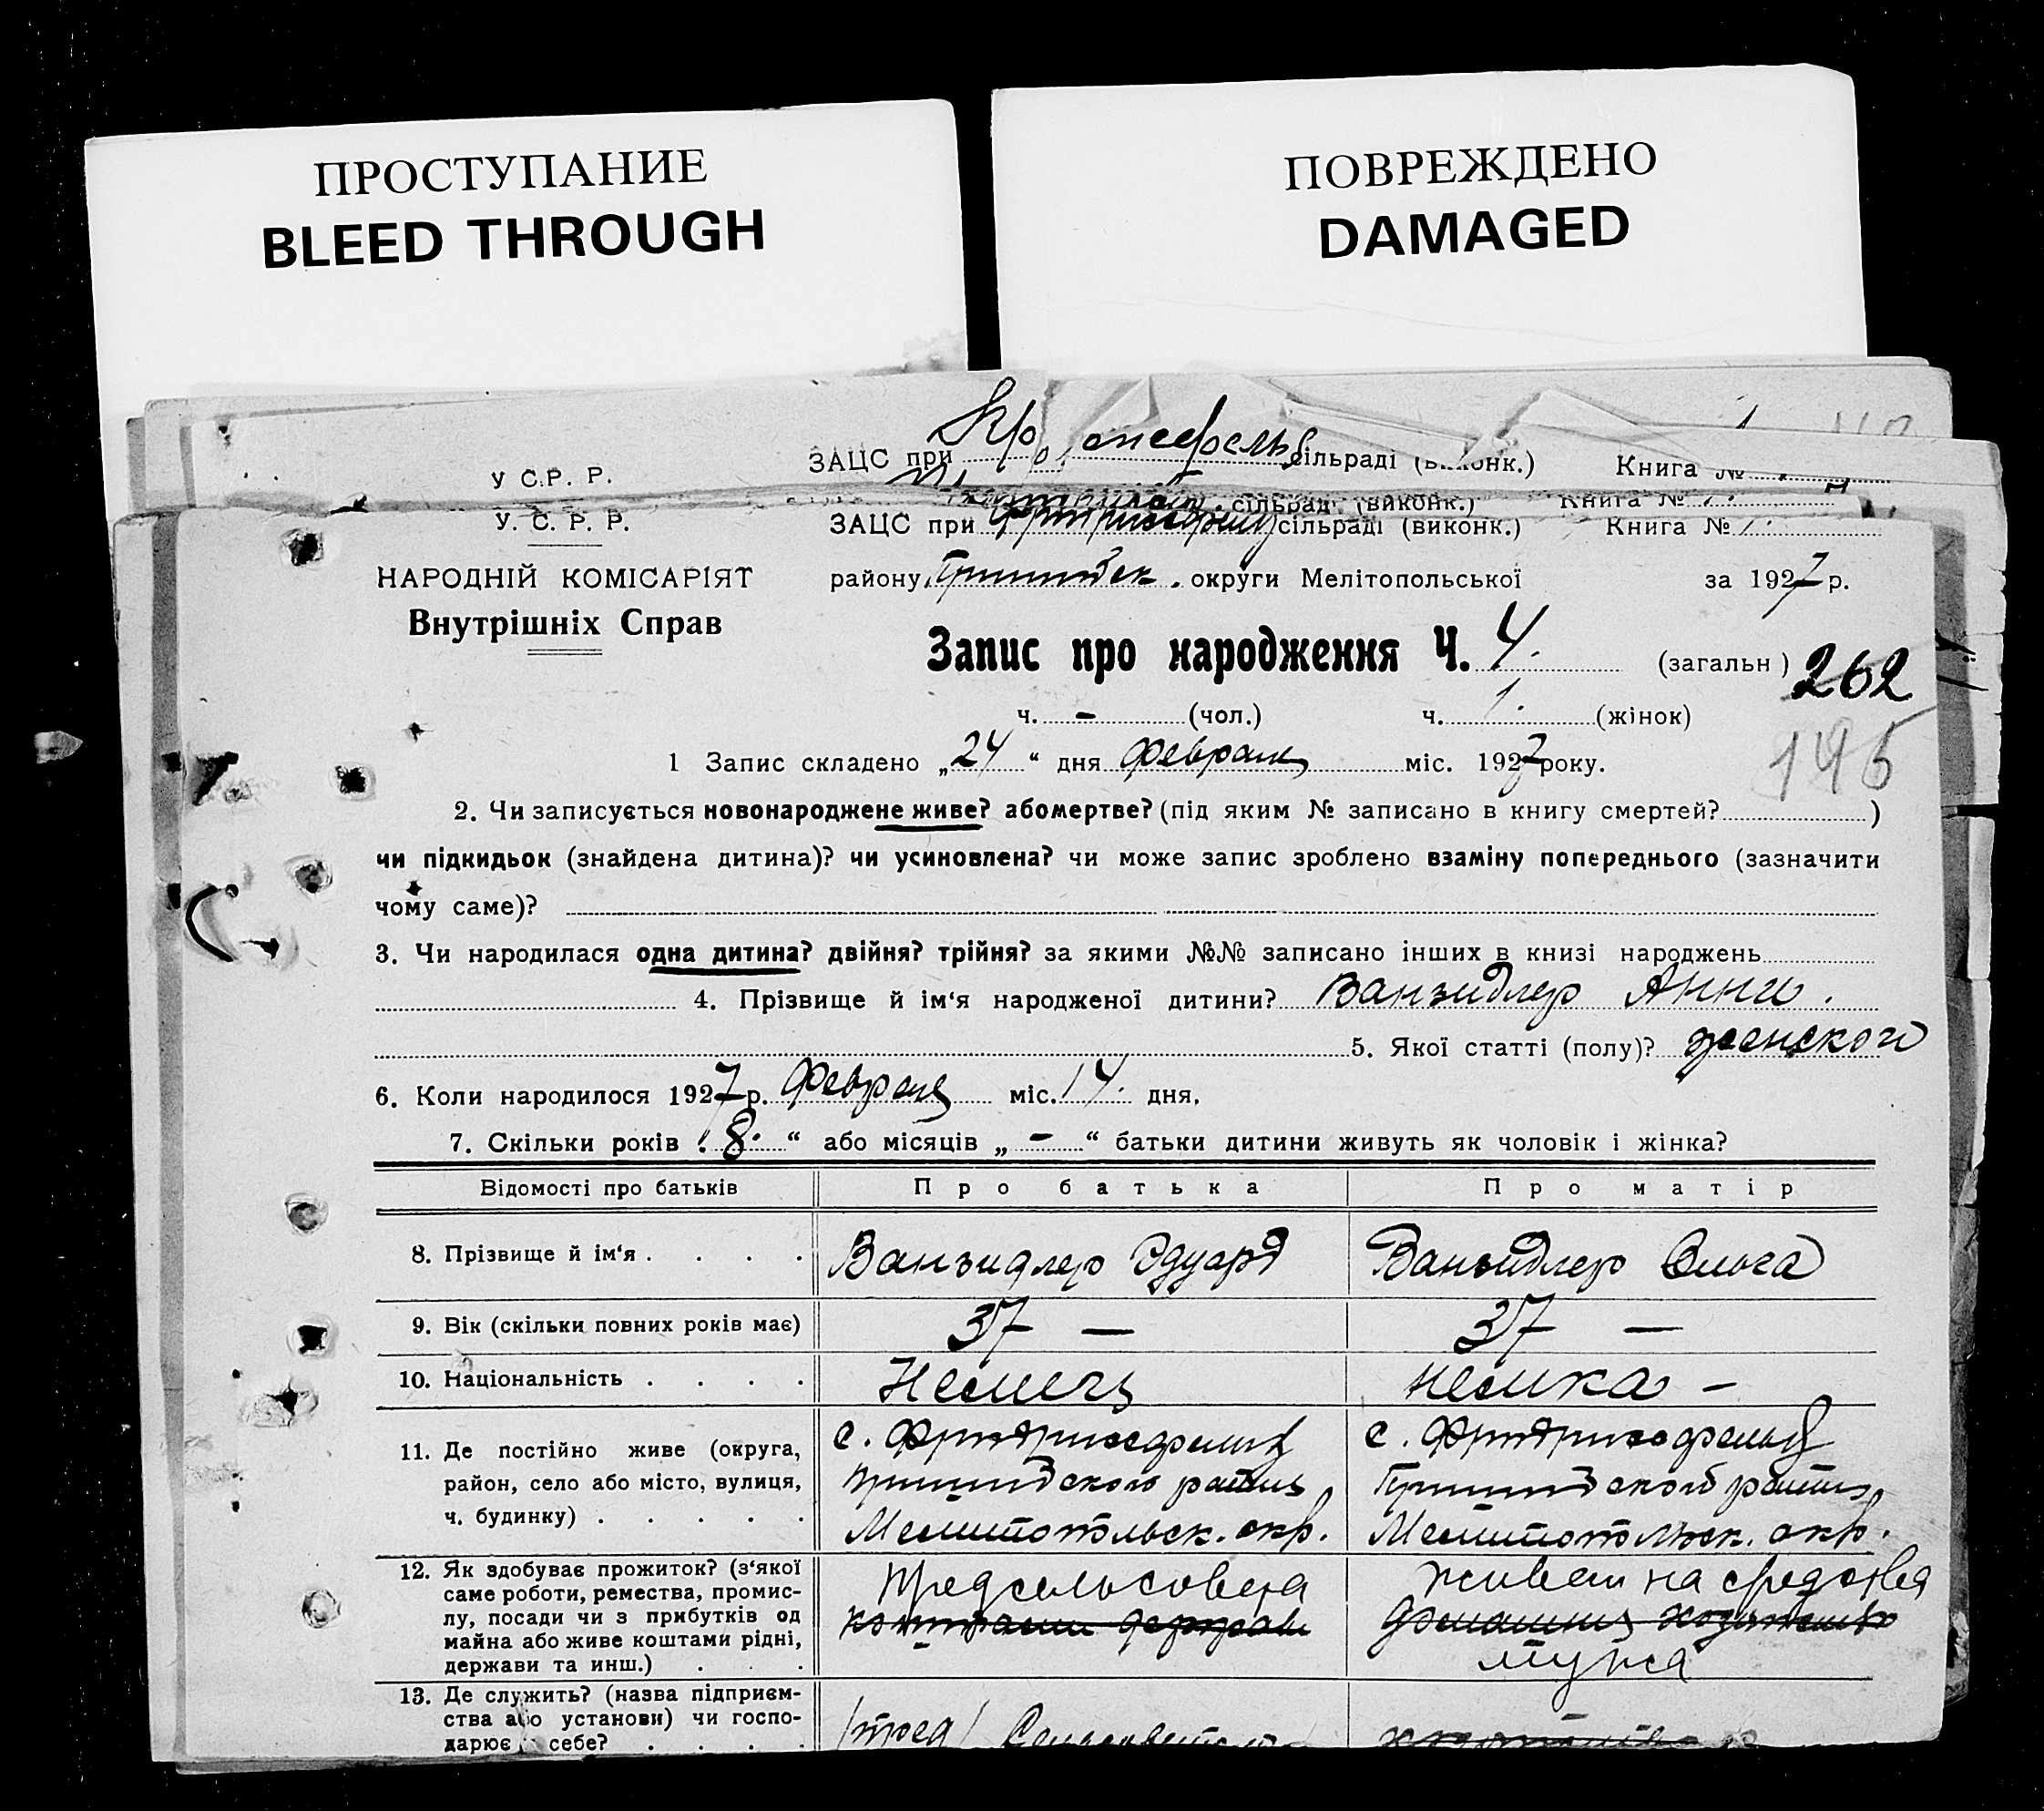 ПРОСТУПАНИЕ
BLEED THROUGH
ПОВРЕЖДЕНО
DAMAGED
У С.Р. Р. ЗАЦС при сільраді (виконк.) Книга №
сільраді (виконк.) Книга №
У. С. Р. Р. ЗАЦС при сільраді (виконк.) Книга № 1.
НАРОДНІЙ КОМІСАРІЯТ району округи Мелітопольської за 1927 р.
Внутрішніх Справ
Запис про народження Ч. 4. (загальн) 262
ч. - (чол.) ч. 1. (жінок)
195
1 Запис складено „24“ дня февраля міс. 1927 року.
2. Чи записується новонароджене живе? абомертве? (під яким № записано в книгу смертей? )
чи підкидьок (знайдена дитина)? чи усиновлена? чи може запис зроблено взаміну попереднього (зазначити
чому саме)?
3. Чи народилася одна дитина? двійня? трійня? за якими №№ записано інших в книзі народжень
4. Прізвище й ім‘я народженої дитини? Ванзидлер Анна.
5. Якої статті (полу)? женского
6. Коли народилося 1927 р. Февраля міс. 14. дня,
7. Скільки років „8.“ або місяців „-“ батьки дитини живуть як чоловік і жінка?
Відомості про батьків Про батька Про матір
8. Прізвище й ім‘я . . . . Ванзидлер Эдуард Ванзидлер Ольга
9. Вік (скільки повних років має) 37 — 37 —
10. Національність . . . . Немец немка -
11. Де постійно живе (округа, с. Фридрихсфельд с. Фридрихсфельд
район, село або місто, вулиця, района района
ч. будинку) . . . . . Мелитопольск. окр. Мелитопольск. окр.
12. Як здобуває прожиток? (з‘якої Предсельсовета живет на средства
саме роботи, ремества, промис-
лу, посади чи з прибутків од
майна або живе коштами рідні, мужа
держави та инш.) . . .
13. Де служить? (назва підприєм-
ства або установи) чи госпо- пред
дарює в себе? . . . .